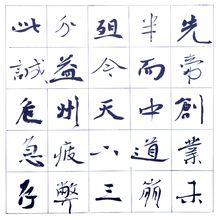 先帝創業未
半而中道崩
殂今天下三
分益州疲弊
此誠危急存